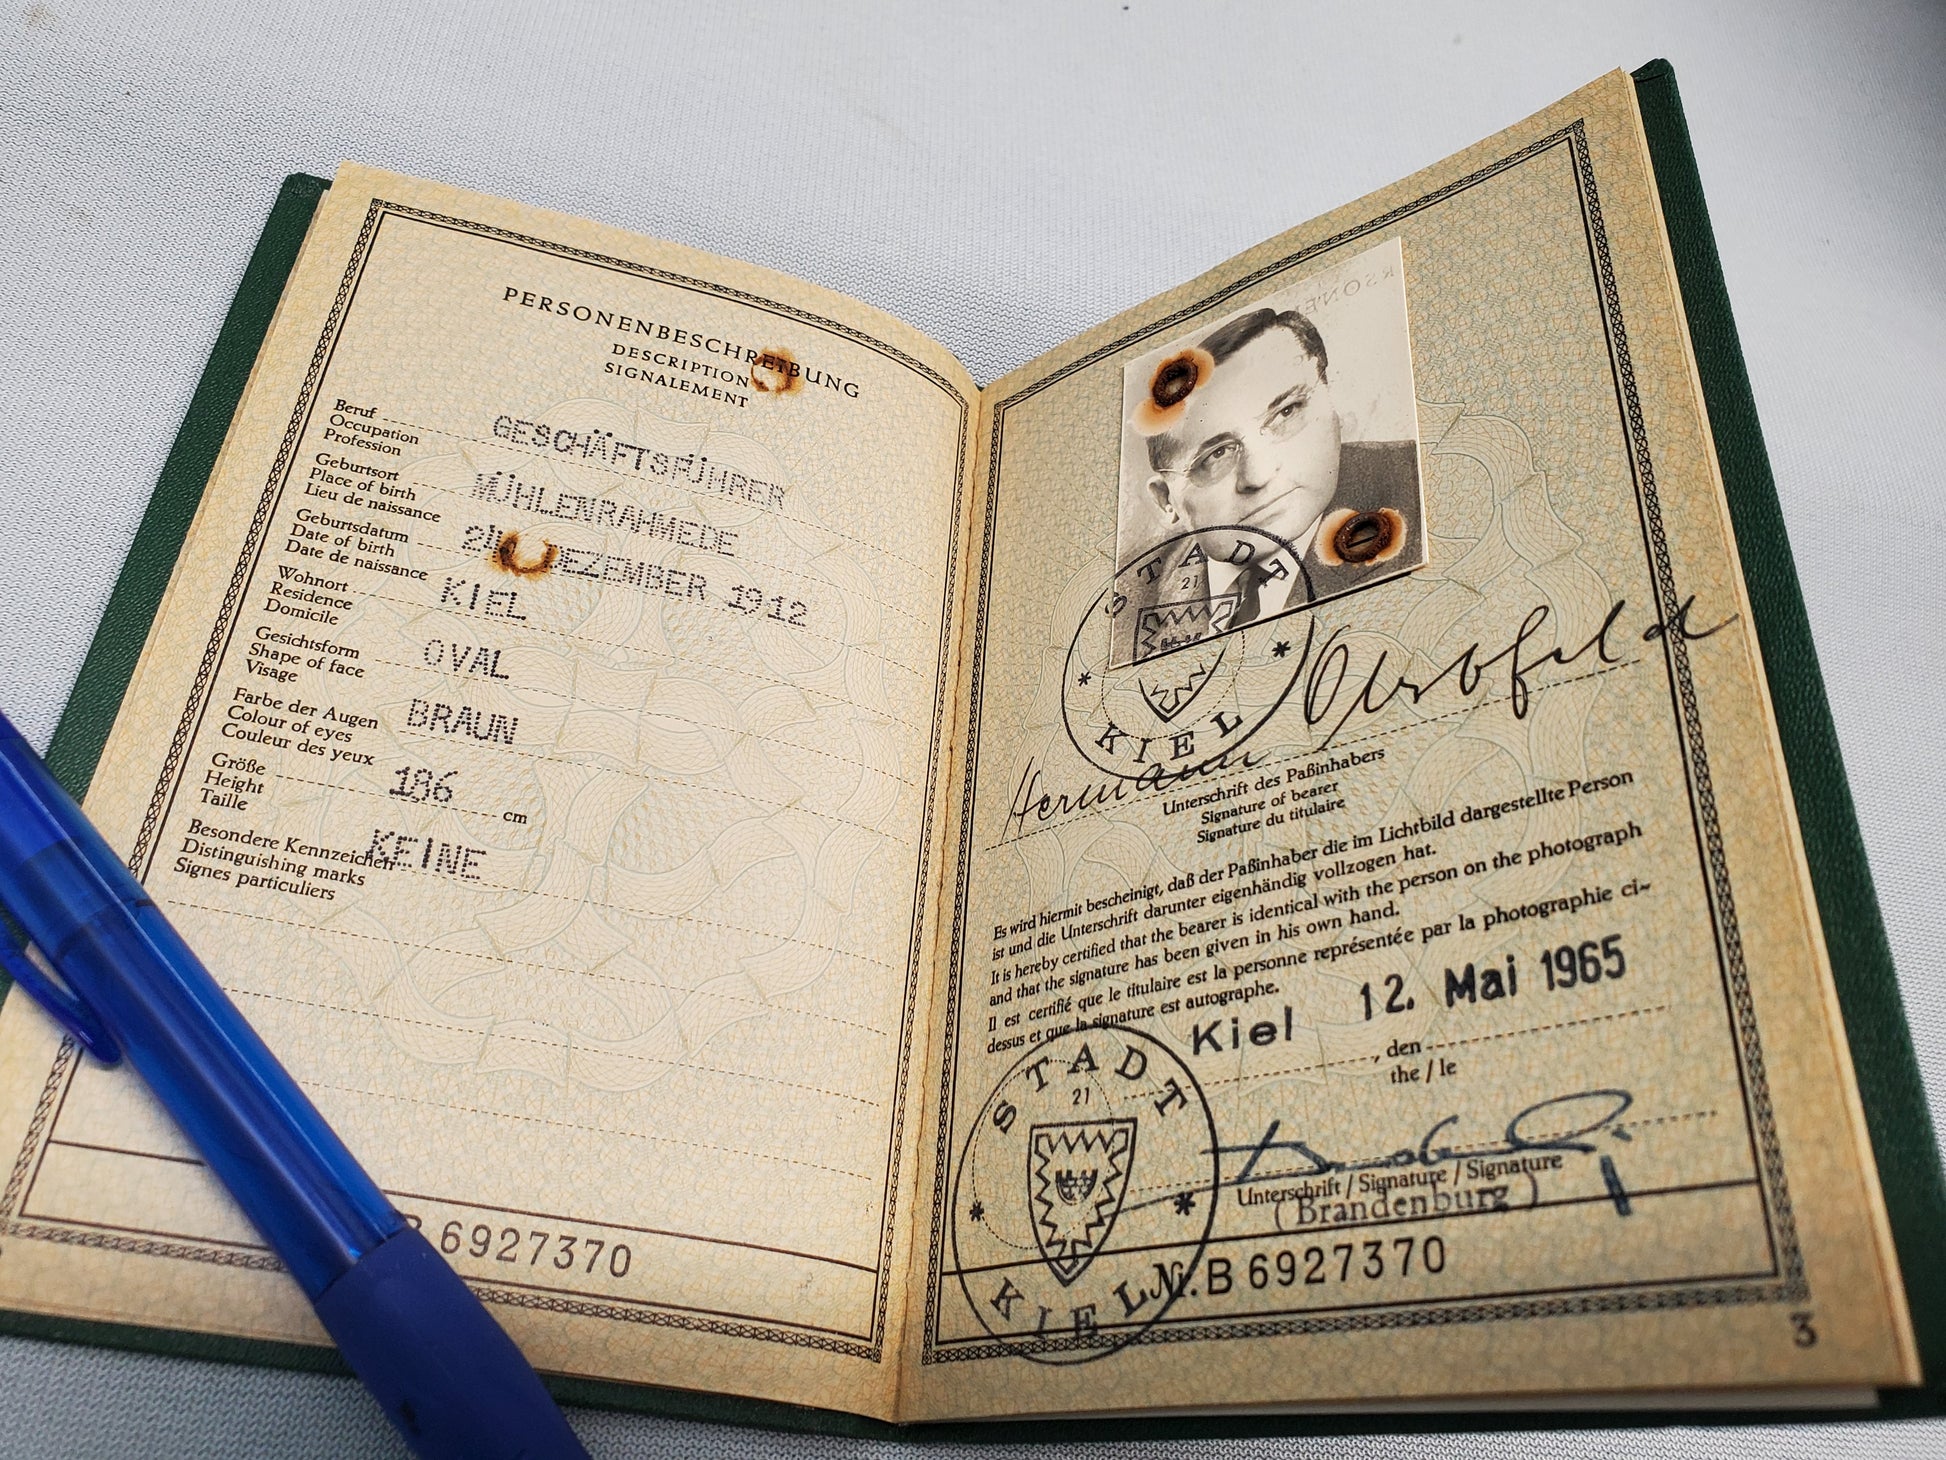 PERSONENBESCHREIBUNG
DESCRIPTION
SIGNALEMENT
Beruf
Occupation
Profession
GESCHÄFTSFÜHRER
Geburtsort
Place of birth
Lieu de naissance
MÜHLENRAHMEDE
Geburtsdatum
Date of birth
Date de naissance
DEZEMBER 1912
Wohnort
Residence
Domicile
KIEL
Gesichtsform
Shape of face
Visage
OVAL
Farbe der Augen
Colour of eyes
Couleur des yeux
BRAUN
Größe
Height
Taille
186 cm
Besondere Kennzeichen
Distinguishing marks
Signes particuliers
KEINE
B 6927370
STADT
21
KIEL
Hermann
Unterschrift des Paßinhabers
Signature of bearer
Signature du titulaire
Es wird hiermit bescheinigt, daß der Paßinhaber die im Lichtbild dargestellte Person
ist und die Unterschrift darunter eigenhändig vollzogen hat.
It is hereby certified that the bearer is identical with the person on the photograph
and that the signature has been given in his own hand.
Il est certifié que le titulaire est la personne représentée par la photographie ci-
dessus et que la signature est autographe.
Kiel , den 12. Mai 1965
the / le
STADT
21
KIEL
Unterschrift / Signature / Signature
( Brandenburg )
Nr. B 6927370
3